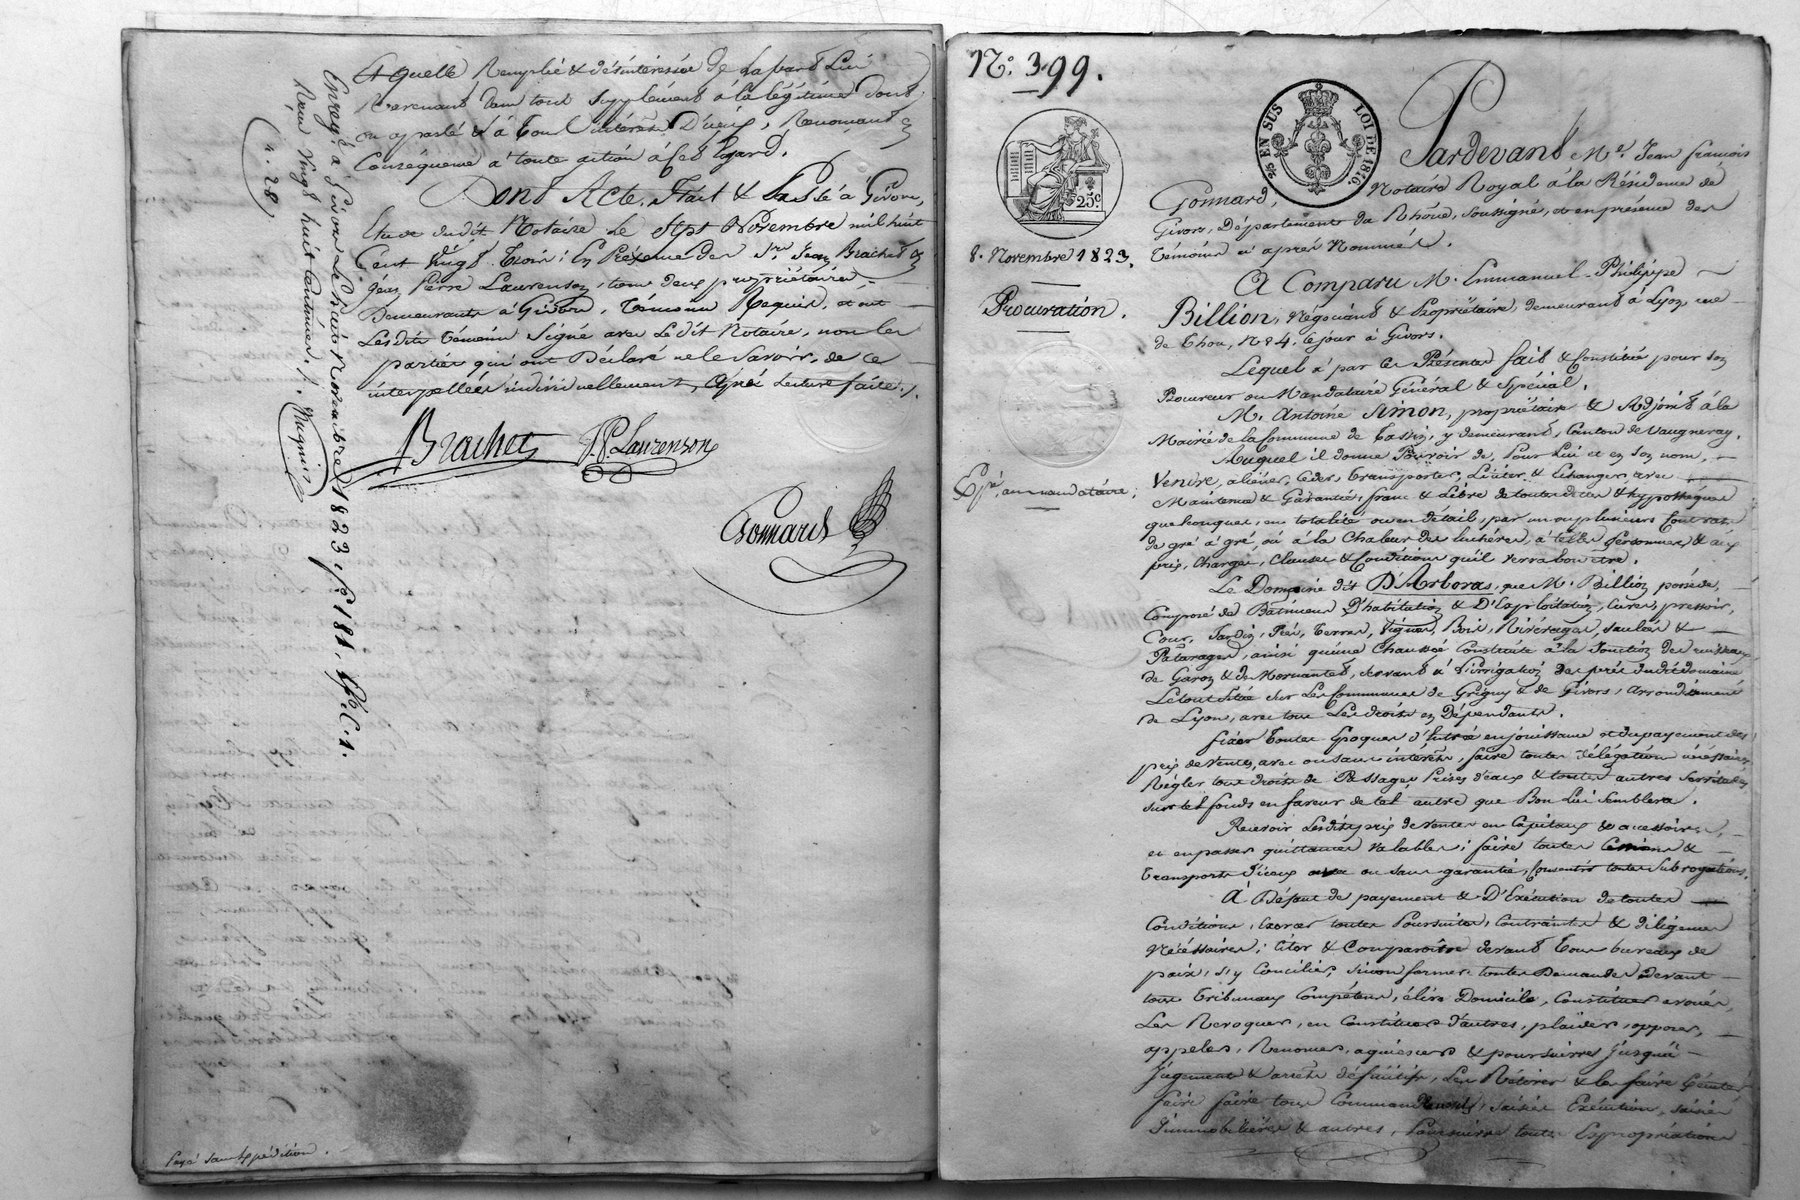 Laquelle Remplie & désintéressée de la part Lui
Revenant dans tout supplément à la légitime dont
on a parlé & à tout intérêts D'iceux, Renonçant en
Conséquence à toute action à cet Egard.
Dont Acte. Fait & Passé à Givors,
Etude dudit Notaire le Sept Novembre mil huit
Cent vingt Trois; En Présence des Srs. Jean Brachet &
Jean Pierre Laurenson, tous deux propriétaires
Demeurants à Givors, Témoins Requis, et ont
Lesdits Témoins Signé avec Ledit Notaire, non les
parties qui ont Déclaré ne le Savoir, de ce
interpellées individuellement, Après Lecture faite ./.
Brachet J.P. Laurenson
Gonnard
Enregé. à Givors Le huit Novembre 1823, fo. 181, Ro. C. 1.
Reçu vingt huit centimes ./.
4. 28
Payé sans Expédition.
No. 399.
25c
25 EN SUS LOI DE 1816.
8. Novembre 1823.
Procuration.
Expé. au mandataire;
Pardevant Me. Jean François
Gonnard, Notaire Royal à la Résidence de
Givors, Département du Rhône, soussigné, et en présence des
Témoins ci après Nommés.
A Comparu M. Emmanuel-Philippe
Billion, Négociant & Propriétaire, demeurant à Lyon, rue
de Thou, No. 4, ce jour à Givors.
Lequel à par ces Présentes fait & Constitué pour son
Procureur ou Mandataire Général & Spécial.
M. Antoine Simon, propriétaire & Adjoint à la
Mairie de la Commune de Tassin, y demeurant, Canton de Vaugneray.
Auquel il donne Pouvoir de, Pour lui et en son nom,
Vendre, aliéner, Céder, Transporter, Liciter & Echanger, avec
Maintenue & Garantie, franc & Libre de toutes dettes & hypothèques
quelconques, en totalité ou en détail, par un ou plusieurs Contrats
de gré à gré, ou à la Chaleur des Enchères, à telles personnes, & aux
prix, Charges, Clauses & Conditions qu'il verra bon être.
Le Domaine dit D'Arboras, que M. Billion possède,
Composé de Bâtimens D'habitation & D'Exploitation, Cuves, pressoir,
Cour, Jardin, Prés, Terres, Vignes, Bois, Rivérages, saulées &
Paturages, ainsi qu'une Chaussée Construite à la Jonction des ruisseaux
de Garon & de Mornantet, servant à l'irrigation des prés dudit domaine
Le tout Situé sur Les Communes de Grigny & de Givors, arrondissement
de Lyon, avec tous Les droits en Dépendants.
Fixer Toutes Epoques d'Entrée en jouissance et du payement des
prix de Ventes, avec ou sans intérêts, faire toutes délégations nécessaires
Régler tous droits de Passages Prises d'eaux & toutes autres Servitudes
sur tel fonds en faveur de tel autre que Bon Lui Semblera.
Recevoir Lesdits prix de Ventes en Capitaux & accessoires,
et en passer quittances Valables; faire toutes Cessions &
Transports d'iceux avec ou sans garantie, Consentir toutes Subrogations.
A Défaut de payement & D'Exécution de toutes
Conditions, Exercer toutes Poursuites, Contraintes & diligences
Nécessaires; Citer & Comparoître devant Tous bureaux de
paix; s'y Concilier, sinon former toutes Demandes devant
tous Tribunaux Compétens, élire Domicile, Constituer avoués,
Les Révoquer, en Constituer d'autres, plaider, opposer,
appeler, Renoncer, acquiescer & poursuivre Jusqu'à
Jugements & arrêts définitifs, Les Rétirer & les faire
faire tous Commandements, saisies Exécution, saisies
Immobilières & autres, Poursuivre toutes Expropriations